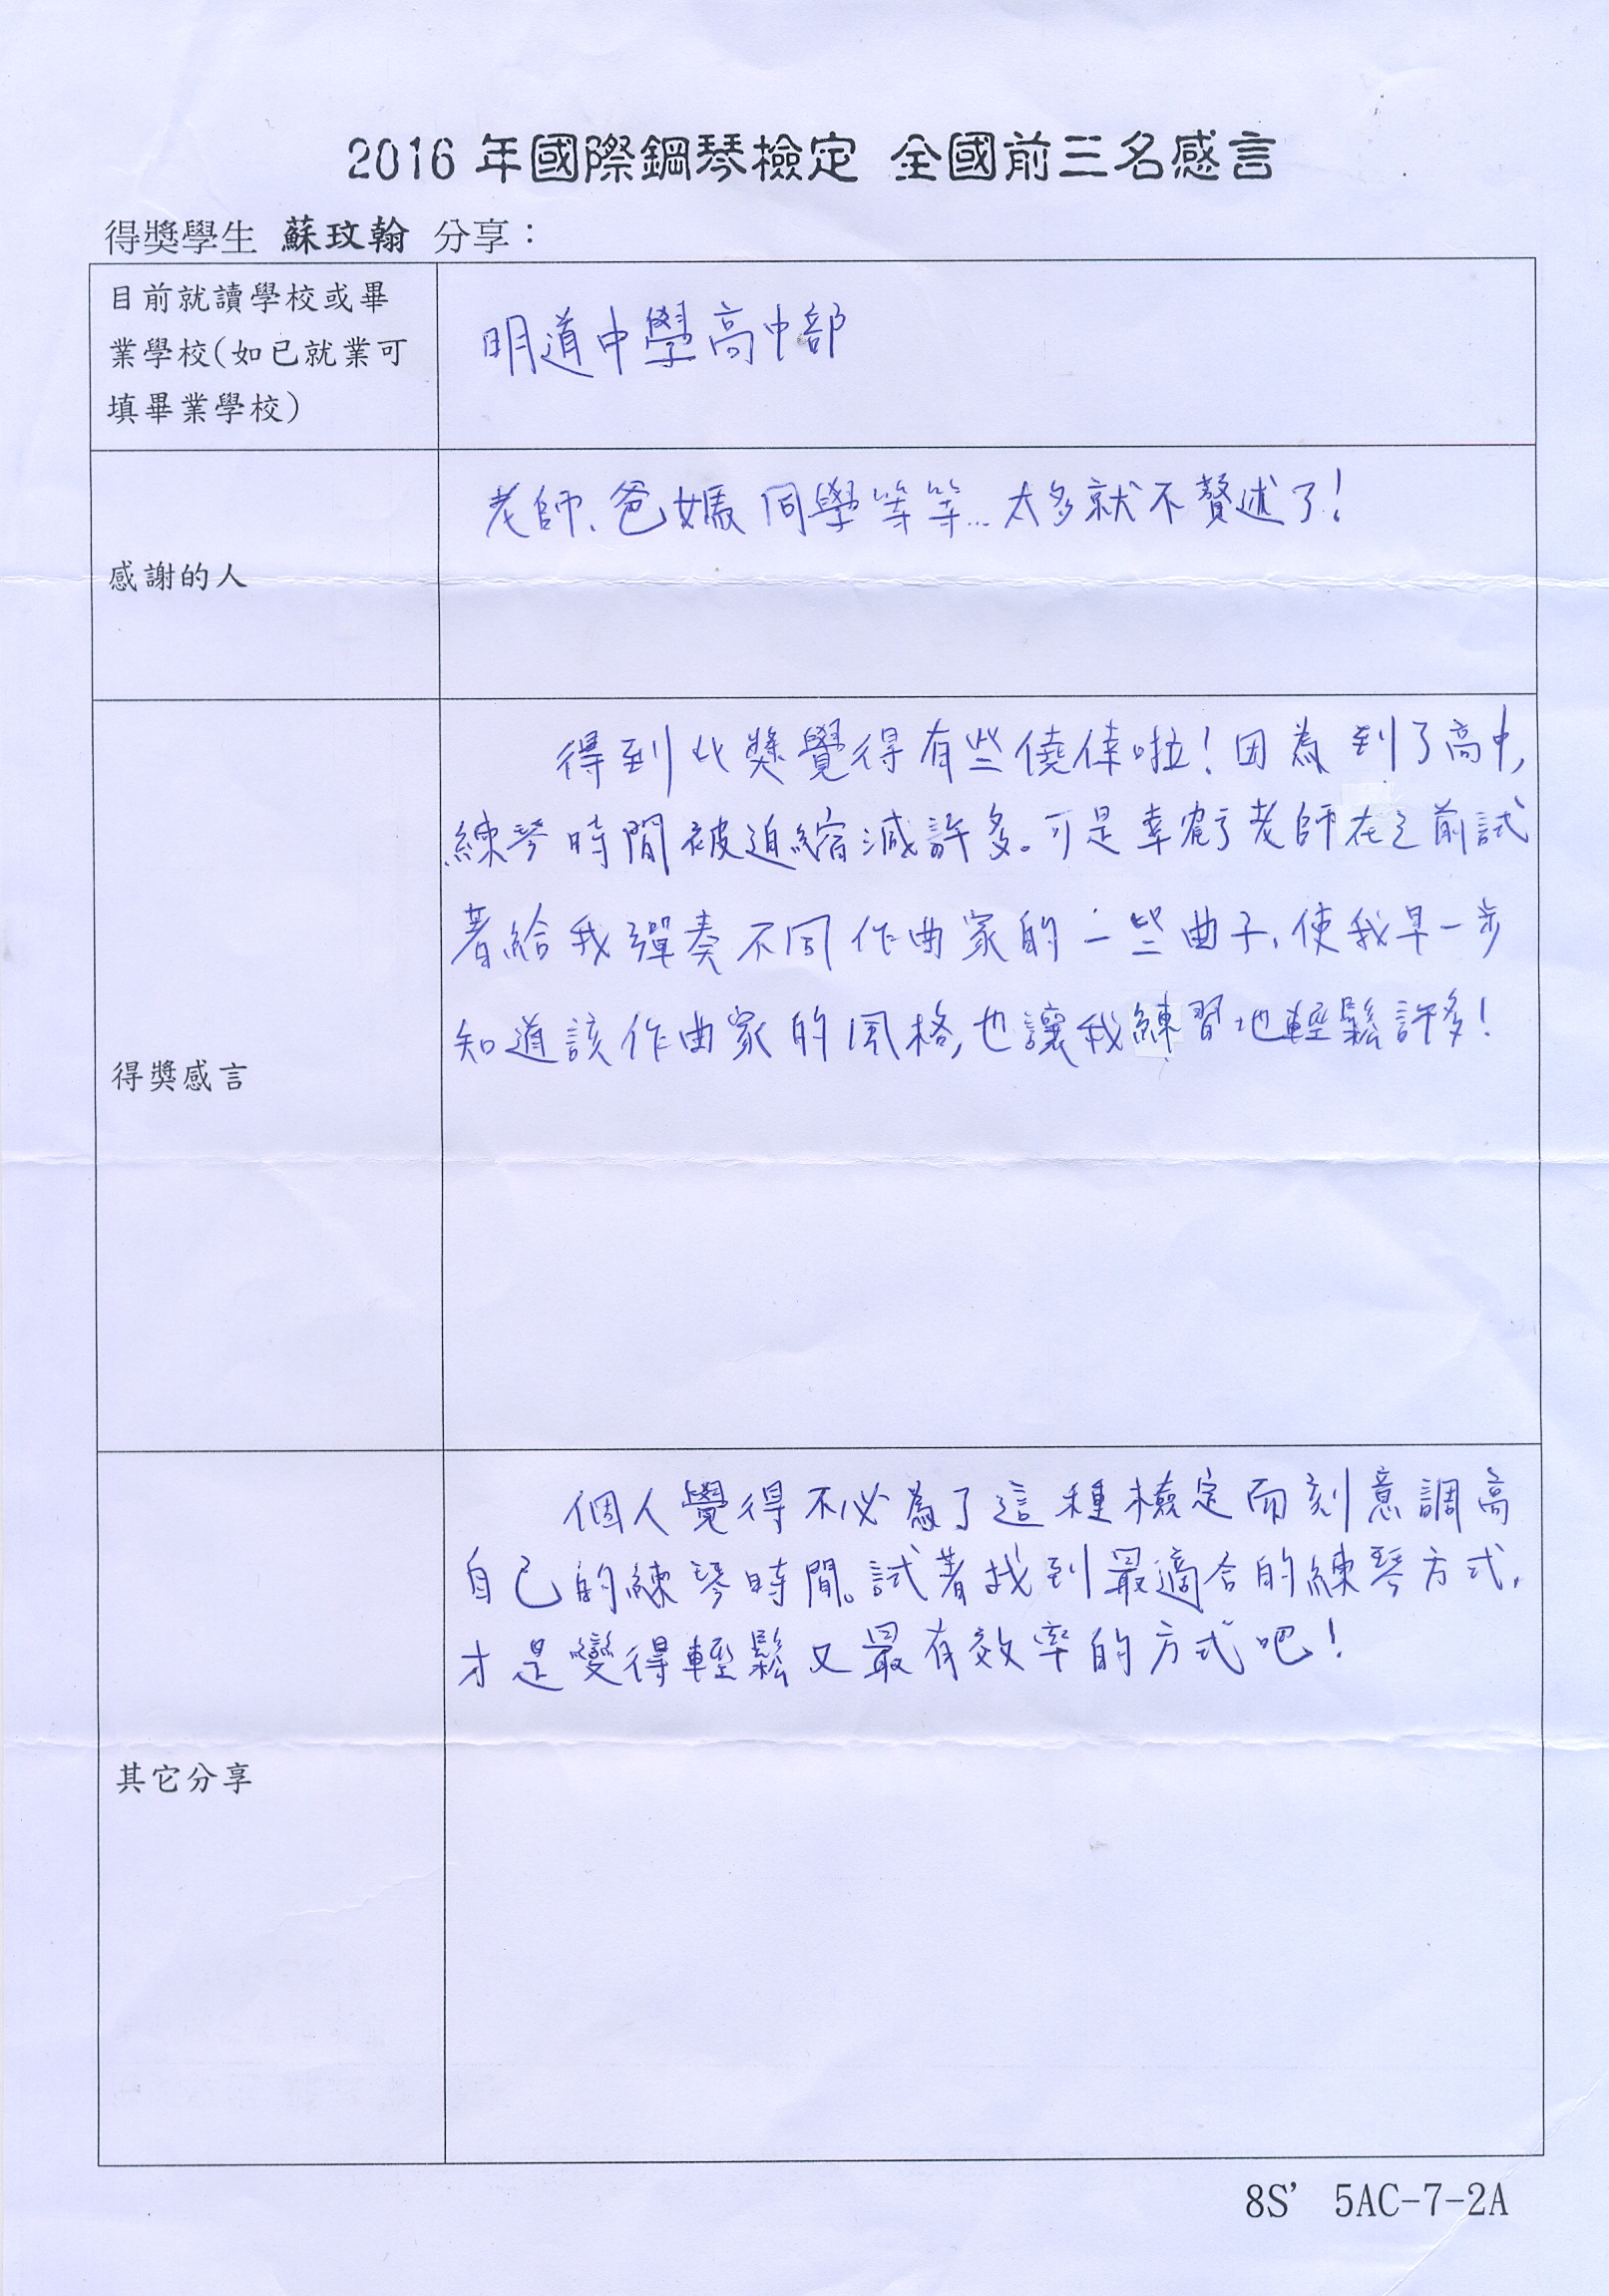 2016 年國際鋼琴檢定 全國前三名感言
得獎學生 蘇玟翰 分享：
目前就讀學校或畢
業學校(如已就業可
填畢業學校)
明道中學高中部
感謝的人
老師、爸媽 同學等等…太多就不贅述了!
得獎感言
得到此獎覺得有些僥倖啦!因為到了高中,
練琴時間被迫縮減許多。可是幸虧老師在之前試
著給我彈奏不同作曲家的一些曲子,使我早一步
知道該作曲家的風格,也讓我練習地輕鬆許多!
其它分享
個人覺得不必為了這種檢定而刻意調高
自己的練琴時間。試著找到最適合的練琴方式,
才是變得輕鬆又最有效率的方式吧!
8S' 5AC-7-2A